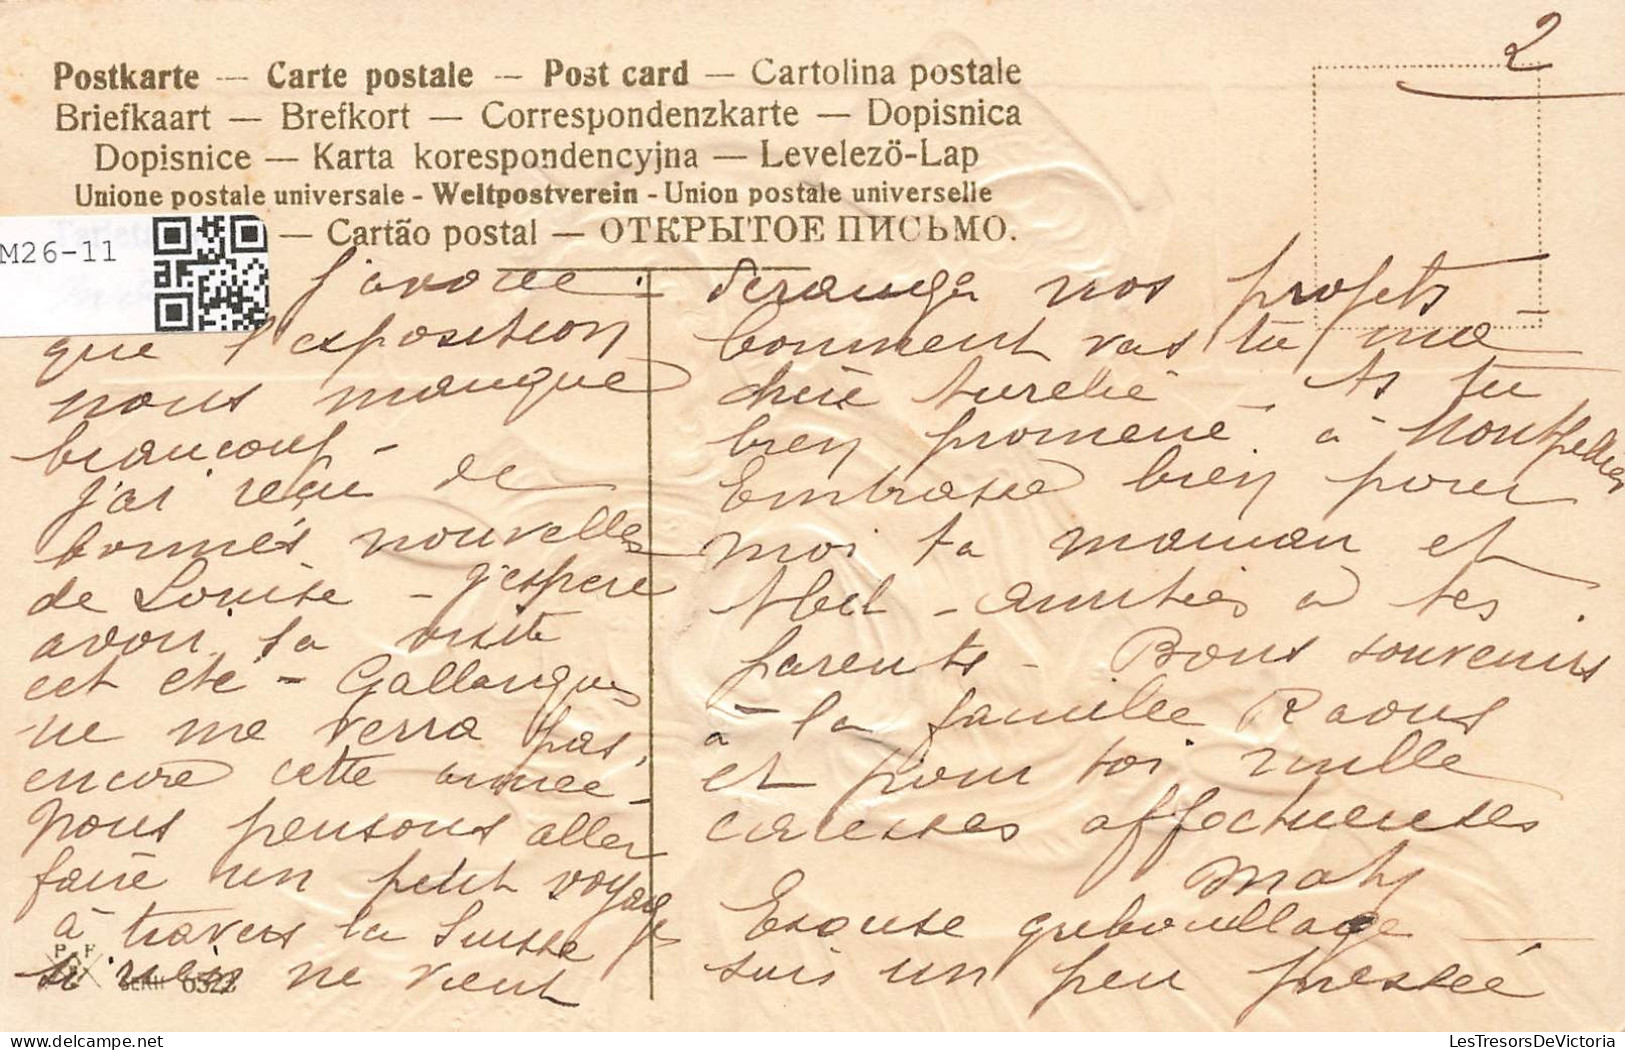 2
Postkarte — Carte postale — Post card — Cartolina postale
Briefkaart — Brefkort — Correspondenzkarte — Dopisnica
Dopisnice — Karta korespondencyjna — Levelezö-Lap
Unione postale universale - Weltpostverein - Union postale universelle
— Cartão postal — ОТКРЫТОЕ ПИСЬМО.
M26-11
J'avoue
que l'exposition
nous manque
beaucoup -
j'ai reçu de
bonnes nouvelles
de Louise - j'espère
avoir sa visite
cet été - Gallargues
ne me verra pas
encore cette année -
Nous pensons aller
faire un petit voyage
à travers la Suisse
si rien ne vient
P F
SERIE 6522
derangea nos projets -
Comment vas tu ma
chère Aurélie - As tu
bien promené à Montpellier
Embrasse bien pour
moi ta maman et
Abel - amitiés à tes
parents - Bons souvenirs
à la famille Raoux
et pour toi mille
caresses affectueuses
Maty
Excuse gribouillage -
suis un peu pressée
LesTresorsDeVictoria